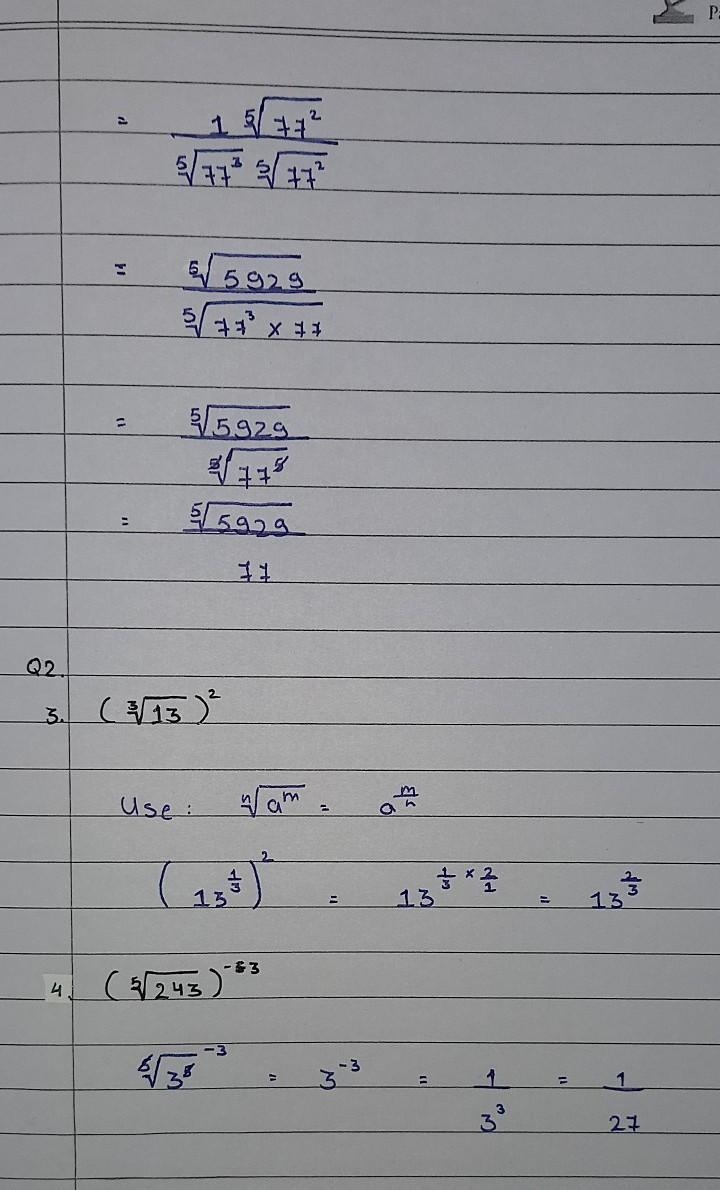 = 1 ⁵√77² / ⁵√77³ ⁵√77²
= ⁵√5929 / ⁵√77³ × 77
= ⁵√5929 / ⁵√77⁵
= ⁵√5929 / 77
Q2.
3. (³√13)²
Use: ⁿ√aᵐ = a^(m/n)
(13^(1/3))² = 13^(1/3 × 2/1) = 13^(2/3)
4. (⁵√243)⁻³
⁵√3⁵ ⁻³ = 3⁻³ = 1/3³ = 1/27